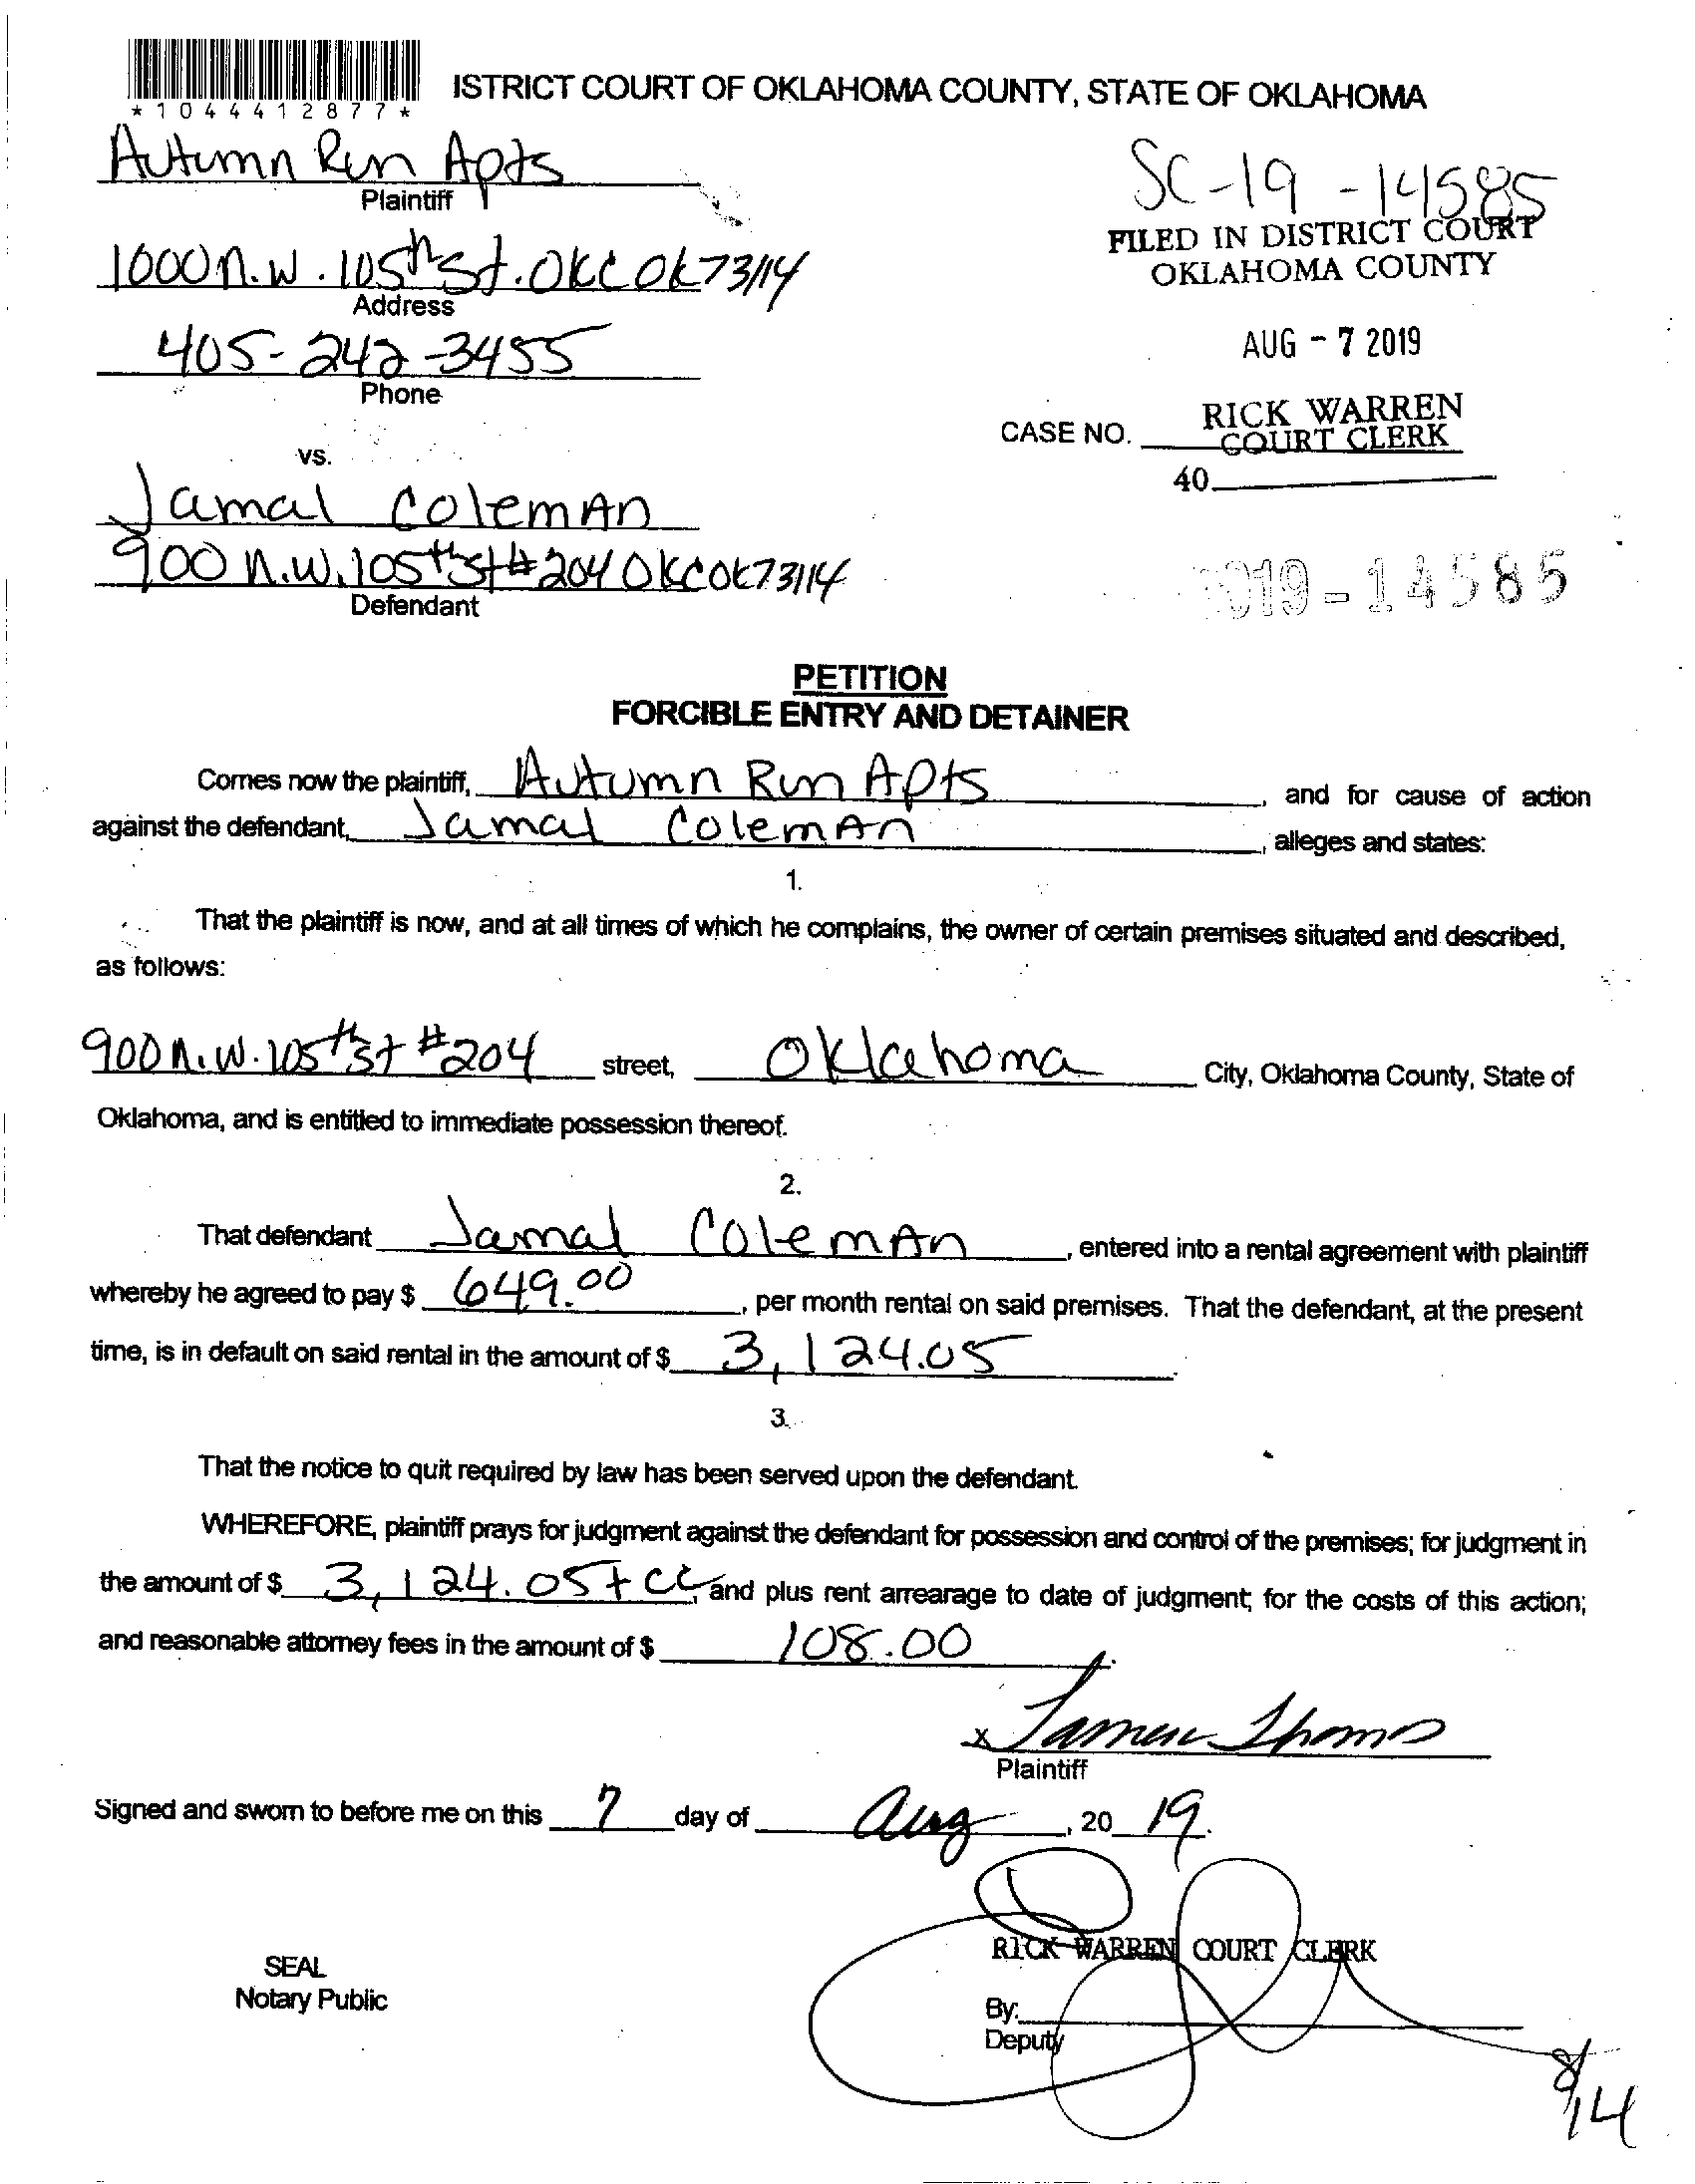 *1044412877*
ISTRICT COURT OF OKLAHOMA COUNTY, STATE OF OKLAHOMA
Autumn Run Apts
Plaintiff
SC-19-14585
FILED IN DISTRICT COURT
OKLAHOMA COUNTY
1000 N.W. 105th St. OKC OK 73114
Address
AUG - 7 2019
405-242-3455
Phone
RICK WARREN
CASE NO. COURT CLERK
40
vs.
Jamal Coleman
900 N.W. 105th St #204 OKC OK 73114
Defendant
2019-14585
PETITION
FORCIBLE ENTRY AND DETAINER
Comes now the plaintiff, Autumn Run Apts, and for cause of action
against the defendant, Jamal Coleman, alleges and states:
1.
That the plaintiff is now, and at all times of which he complains, the owner of certain premises situated and described,
as follows:
900 N.W. 105th St #204 street, Oklahoma City, Oklahoma County, State of
Oklahoma, and is entitled to immediate possession thereof.
2.
That defendant Jamal Coleman, entered into a rental agreement with plaintiff
whereby he agreed to pay $ 649.00, per month rental on said premises. That the defendant, at the present
time, is in default on said rental in the amount of $ 3,124.05.
3.
That the notice to quit required by law has been served upon the defendant.
WHEREFORE, plaintiff prays for judgment against the defendant for possession and control of the premises; for judgment in
the amount of $ 3,124.05 + CC, and plus rent arrearage to date of judgment; for the costs of this action;
and reasonable attorney fees in the amount of $ 108.00.
x
Plaintiff
Signed and sworn to before me on this 7 day of Aug, 20 19.
RICK WARREN COURT CLERK
SEAL
Notary Public
By:
Deputy
8/14